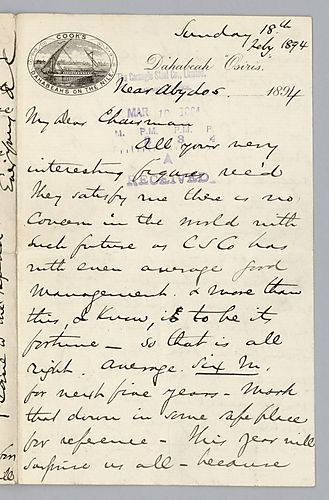 Sunday 18th
Feby 1894
COOK'S
DAHABEAHS ON THE NILE
Dahabeah "Osiris."
The Carnegie Steel Co., Limited.
Near Abydos 1894
MAR 10 1894
My Dear Chairman
P.M. P.M.
All your very
A
RECEIVED
interesting figures rec'd
They satisfy me there is no
Concern in the world with
such future as CSCo has
with even average good
Management. & more than
this, I Know, it to be it
fortune — So that is all
right. average six m.
for next five years — Mark
that down in some safe place
for reference — This year will
surprise us all — because